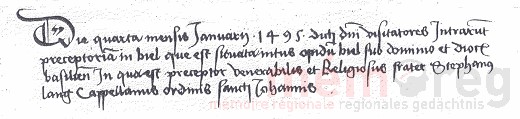 Die quarta mensis Januarii 1495 dicti dni visitatores Intrarut
preceptoria in biel que est situata intus opidu biel sub dominio et dioc
basilien In qua est preceptor venerabilis et Religiosus frater Stephanus
lang Cappellanus ordinis sancti Johannis
memoreg
mémoire régionale regionales gedächtnis